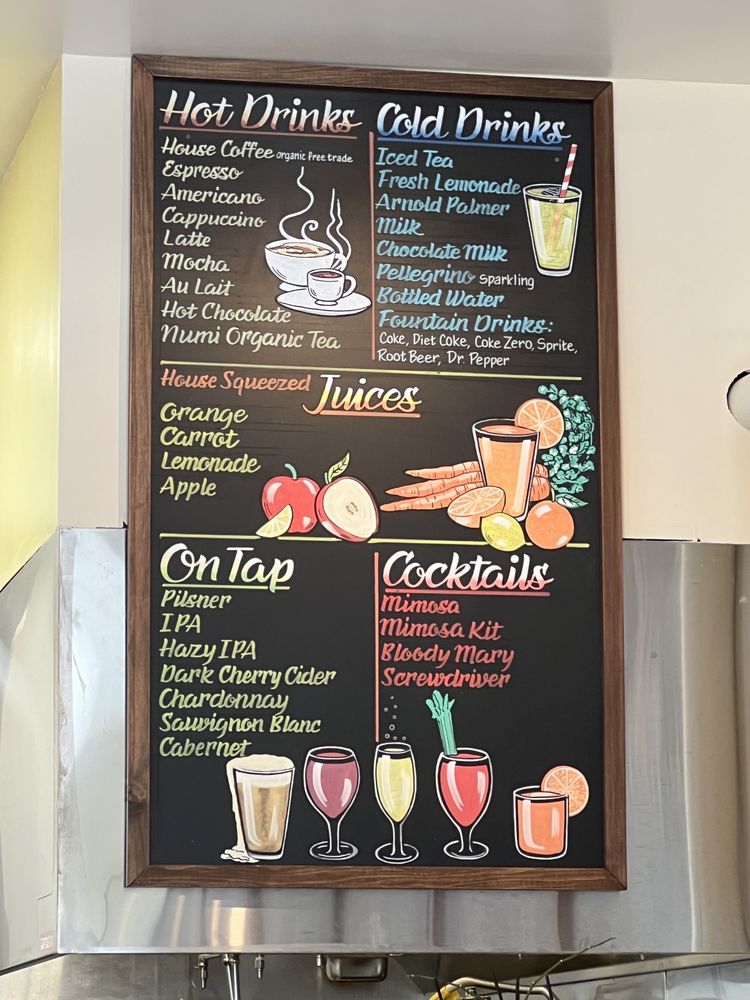 Hot Drinks
House Coffee organic free trade
Espresso
Americano
Cappuccino
Latte
Mocha
Au Lait
Hot Chocolate
Numi Organic Tea
Cold Drinks
Iced Tea
Fresh Lemonade
Arnold Palmer
Milk
Chocolate Milk
Pellegrino Sparkling
Bottled Water
Fountain Drinks:
Coke, Diet Coke, Coke Zero, Sprite,
Root Beer, Dr. Pepper
House Squeezed Juices
Orange
Carrot
Lemonade
Apple
On Tap
Pilsner
IPA
Hazy IPA
Dark Cherry Cider
Chardonnay
Sauvignon Blanc
Cabernet
Cocktails
Mimosa
Mimosa Kit
Bloody Mary
Screwdriver